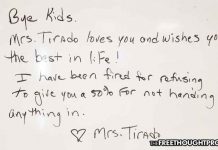 Bye Kids.
Mrs. Tirado loves you and wishes yo
the best in life!
I have been fired for refusing
to give you a 50% for not handing
anything in.
♡ Mrs. Tirado
THEFREETHOUGHTPRO